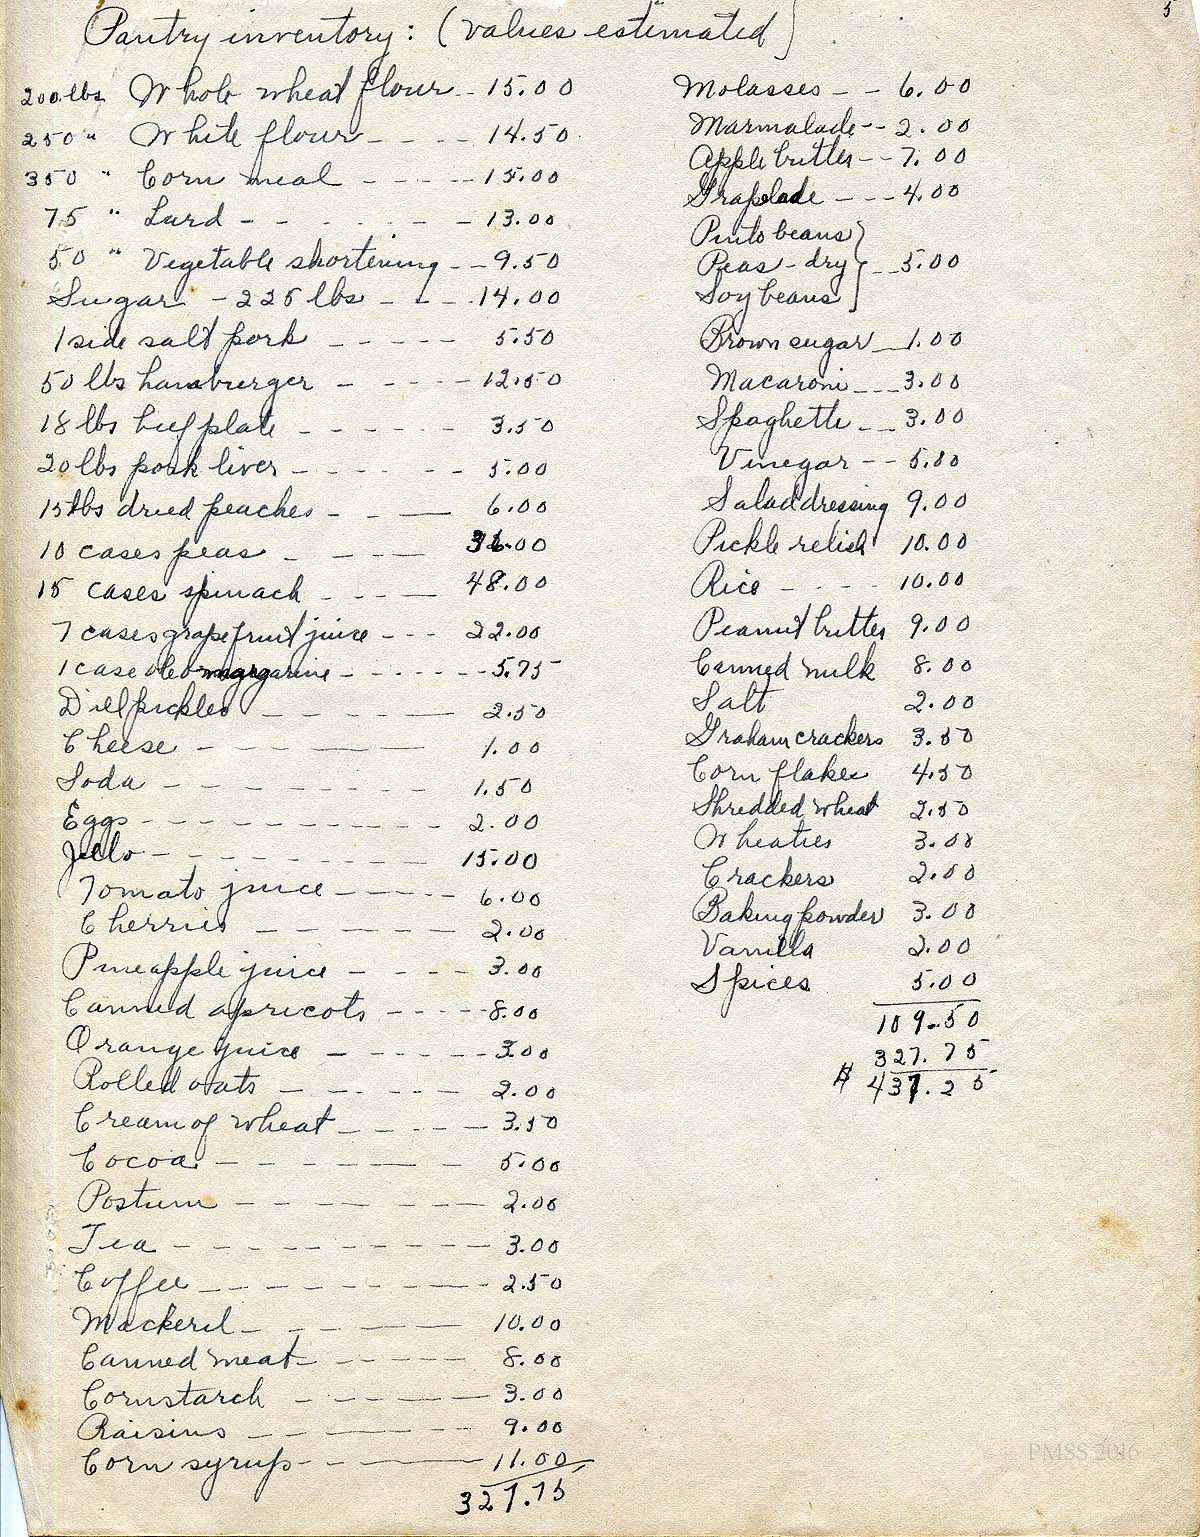 5
Pantry inventory: (values estimated)
200 lbs Whole wheat flour -- 15.00
250 " White flour - - - - 14.50
350 " Corn meal - - - - - 15.00
75 " Lard - - - - - - 13.00
50 " Vegetable shortening -- 9.50
Sugar - 225 lbs - - - - 14.00
1 side salt pork - - - - - 5.50
50 lbs hamburger - - - - - 12.50
18 lbs beef plate - - - - - - 3.50
20 lbs pork liver - - - - - - 5.00
15 lbs dried peaches - - - - 6.00
10 cases peas - - - - - 00
15 cases spinach - - - - - 48.00
7 cases grapefruit juice - - - 22.00
1 case oleomargarine - - - - - - 5.75
Dill pickles - - - - - 2.50
Cheese - - - - - 1.00
Soda - - - - - - - - 1.50
Eggs - - - - - - - - - - 2.00
Jello - - - - - - - - 15.00
Tomato juice - - - - - 6.00
Cherries - - - - - - 2.00
Pineapple juice - - - - - 3.00
Canned apricots - - - - - 8.00
Orange juice - - - - - 3.00
Rolled oats - - - - - - 2.00
Cream of wheat - - - - - 3.50
Cocoa - - - - - - - 5.00
Postum - - - - - - - 2.00
Tea - - - - - - - - - 3.00
Coffee - - - - - - - - - 2.50
Mackerel - - - - - - 10.00
Canned meat - - - - - 8.00
Cornstarch - - - - - - 3.00
Raisins - - - - - - 9.00
Corn syrup - - - - 11.00
327.75
Molasses - - 6.00
Marmalade - - 2.00
Apple butter - - 7.00
Grapelade - - - 4.00
Pinto beans }
Peas - dry } - - 5.00
Soybeans }
Brown sugar - 1.00
Macaroni - - - 3.00
Spaghetti - - - 3.00
Vinegar - - 5.00
Salad dressing 9.00
Pickle relish 10.00
Rice - - - 10.00
Peanut butter 9.00
Canned milk 8.00
Salt 2.00
Graham crackers 3.50
Corn flakes 4.50
Shredded wheat 2.50
Wheaties 3.00
Crackers 2.00
Baking powder 3.00
Vanilla 2.00
Spices 5.00
109.50
327.75
$ 437.25
PMSS 2016